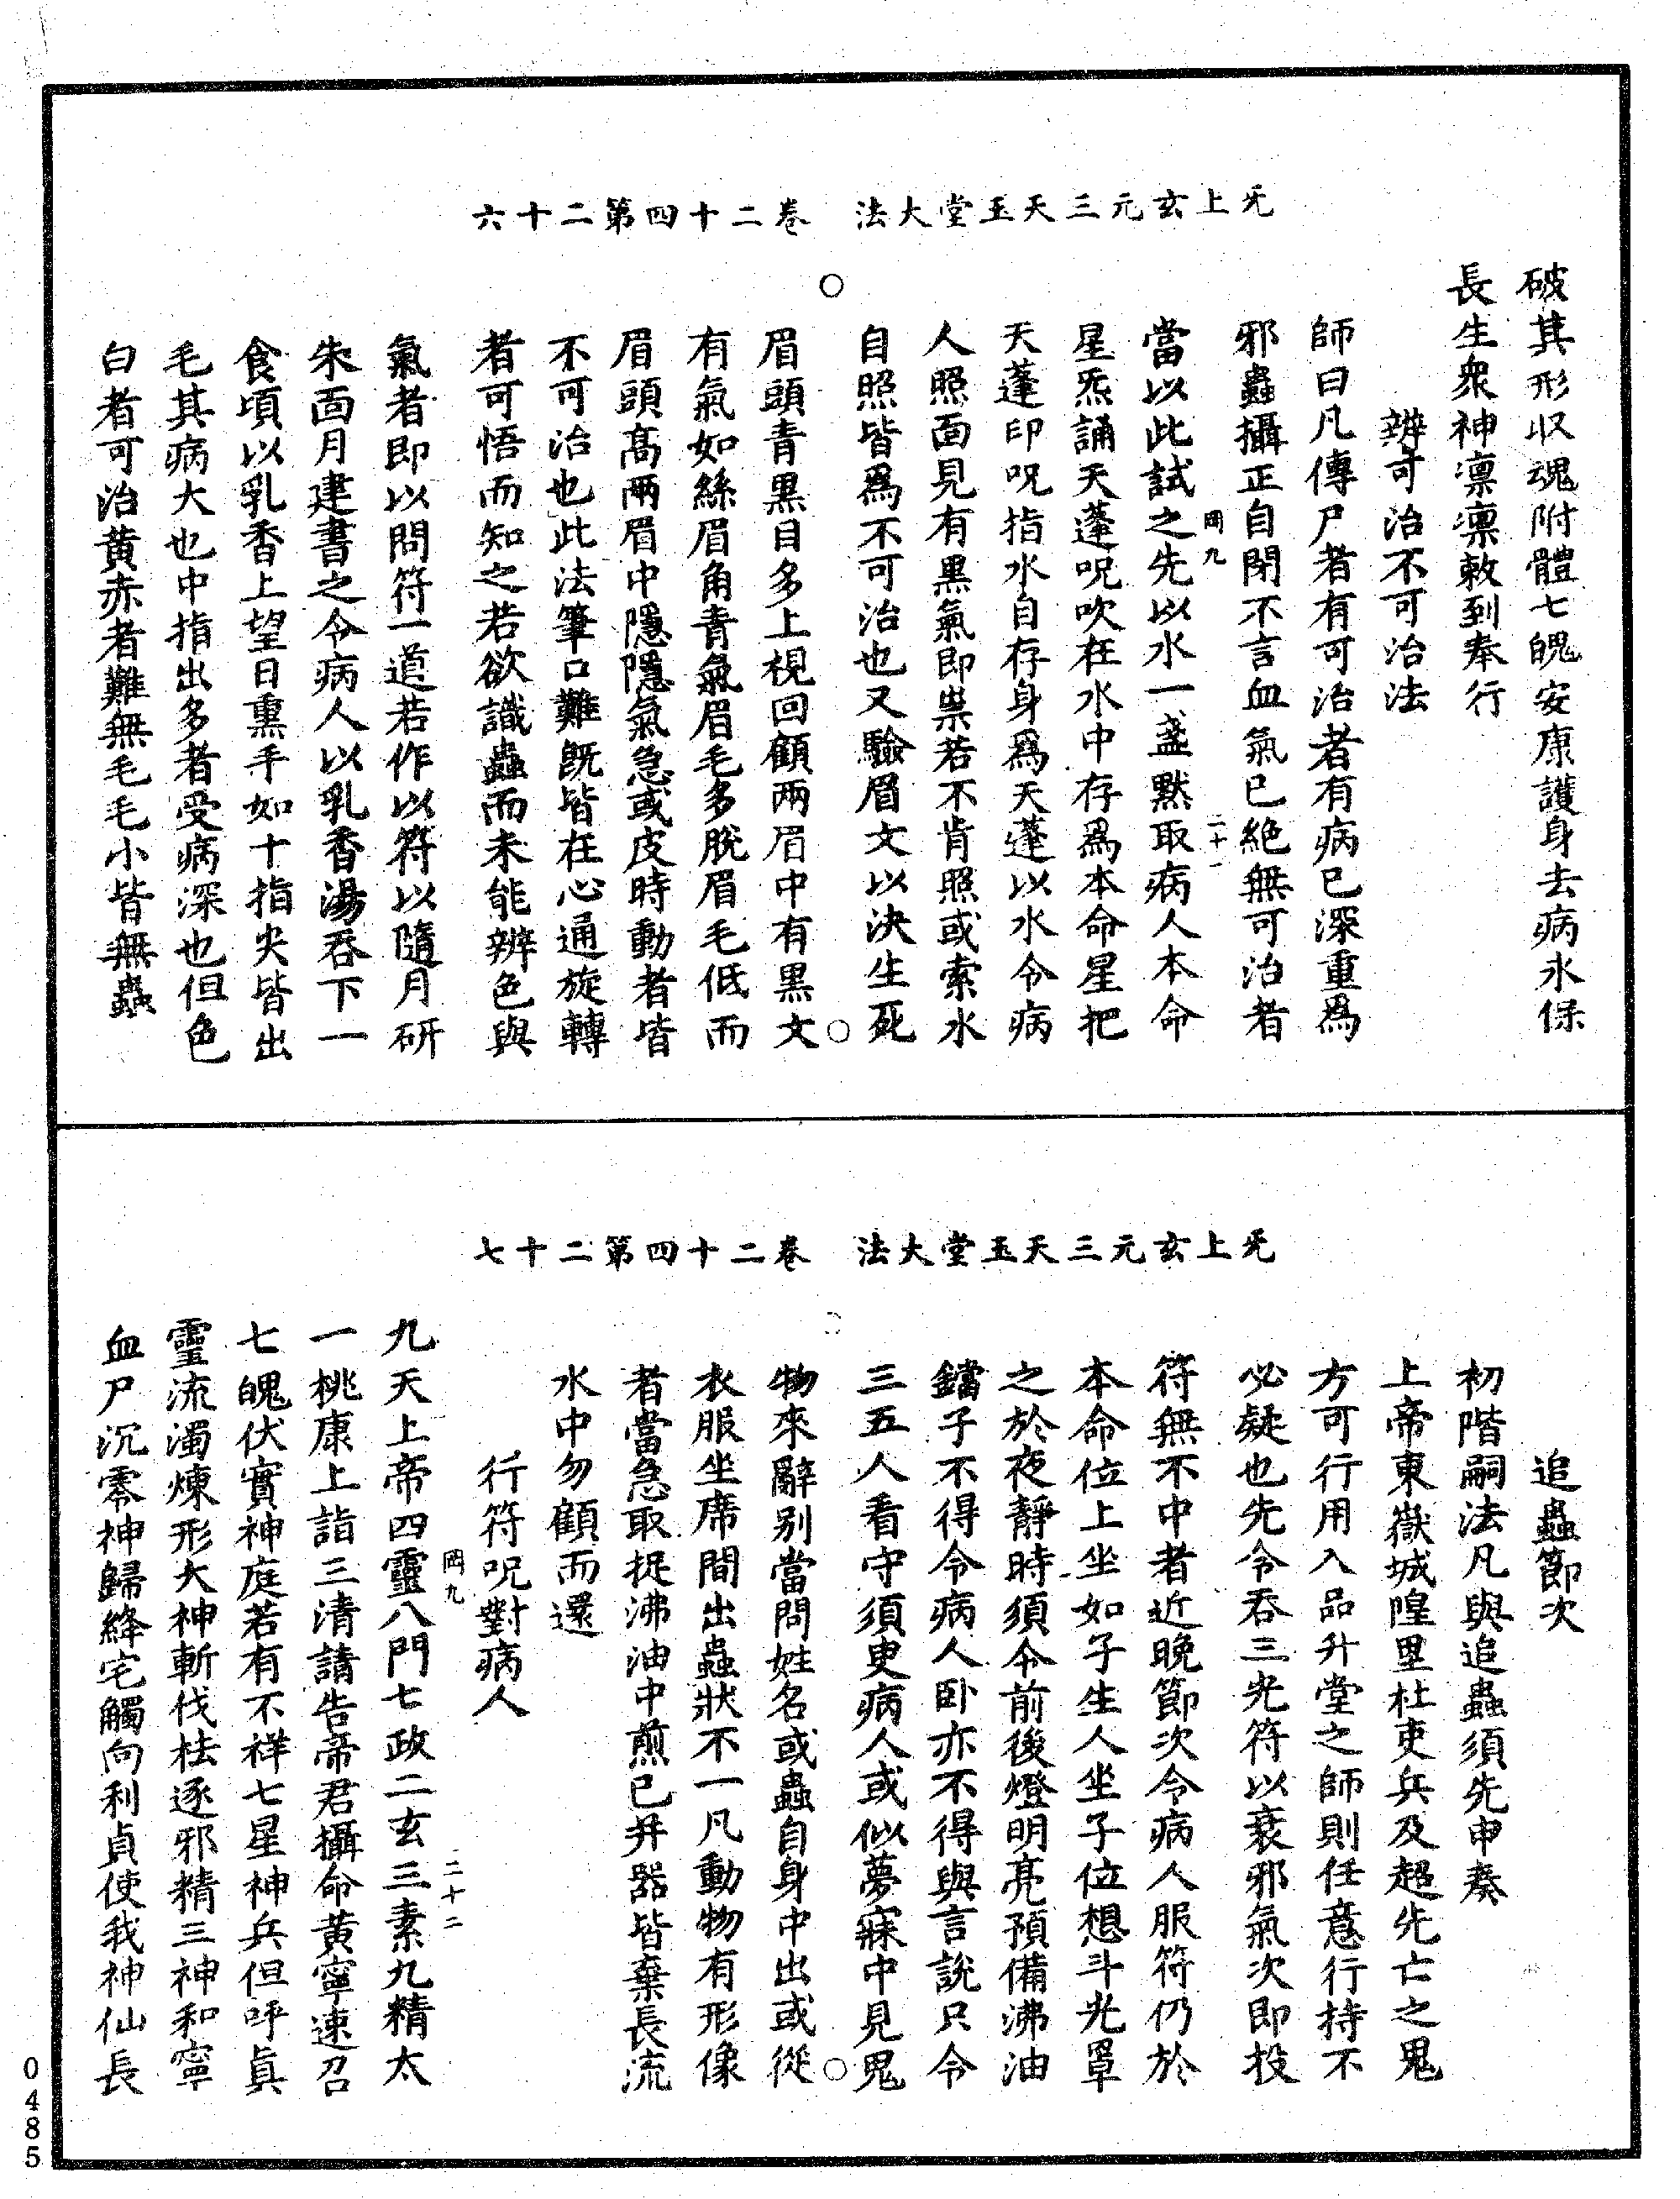 无上玄元三天玉堂大法　卷二十四第二十六
破其形収魂附體七魄安康護身去病永保
長生衆神凛凛敕到奉行
辨可治不可治法
師曰凡傳尸者有可治者有病已深重爲
邪蟲攝正自閉不言血氣已絶無可治者
岡九　二十一
當以此試之先以水一盞黙取病人本命
星炁誦天蓬呪吹在水中存爲本命星把
天蓬印呪指水自存身爲天蓬以水令病
人照面見有黒氣即祟若不肯照或索水
自照皆爲不可治也又驗眉文以決生死
眉頭青黒目多上視回顧兩眉中有黒文
有氣如絲眉角青氣眉毛多脫眉毛低而
眉頭髙兩眉中隱隱氣急或皮時動者皆
不可治也此法筆口難旣皆在心通旋轉
者可悟而知之若欲識蟲而未能辨色與
氣者即以問符一道若作以符以隨月研
朱面月建書之令病人以乳香湯吞下一
食頃以乳香上望日熏手如十指尖皆出
毛其病大也中指出多者受病深也但色
白者可治黄赤者難無毛毛小皆無蟲
无上玄元三天玉堂大法　卷二十四第二十七
追蟲節次
初階嗣法凡與追蟲須先申奏
上帝東嶽城隍里社吏兵及超先亡之鬼
方可行用入品升堂之師則任意行持不
必疑也先令吞三光符以衰邪氣次即投
符無不中者近晚節次令病人服符仍於
本命位上坐如子生人坐子位想斗光罩
之於夜靜時須令前後燈明亮預備沸油
鐺子不得令病人卧亦不得與言說只令
三五人看守須臾病人或似夢寐中見鬼
物來辭别當問姓名或蟲自身中出或從
衣服坐席間出蟲狀不一凡動物有形像
者當急取捉沸油中煎已并器皆棄長流
水中勿顧而還
行符呪對病人
岡九　二十二
九天上帝四靈八門七政二玄三素九精太
一桃康上詣三清請告帝君攝命黄寧速召
七魄伏實神庭若有不祥七星神兵但呼眞
靈流濁煉形大神斬伐枯逐邪精三神和寧
血尸沉零神歸絳宅觸向利貞使我神仙長
0485